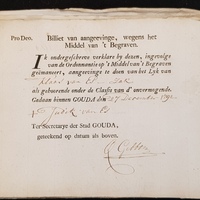 Pro Deo.
Billiet van aangeevinge, wegens het
Middel van 't Begraven.
Ik ondergeschreve verklare by dezen, ingevolge
van de Ordonnantie op 't Middel van 't Begraven
geëmaneert, aangeevinge te doen van het Lyk van
als gehoorende onder de Classis van d' onvermogende.
Gedaan binnen GOUDA den 27 December
Ter Secretarye der Stad GOUDA,
geteekend op datum als boven.